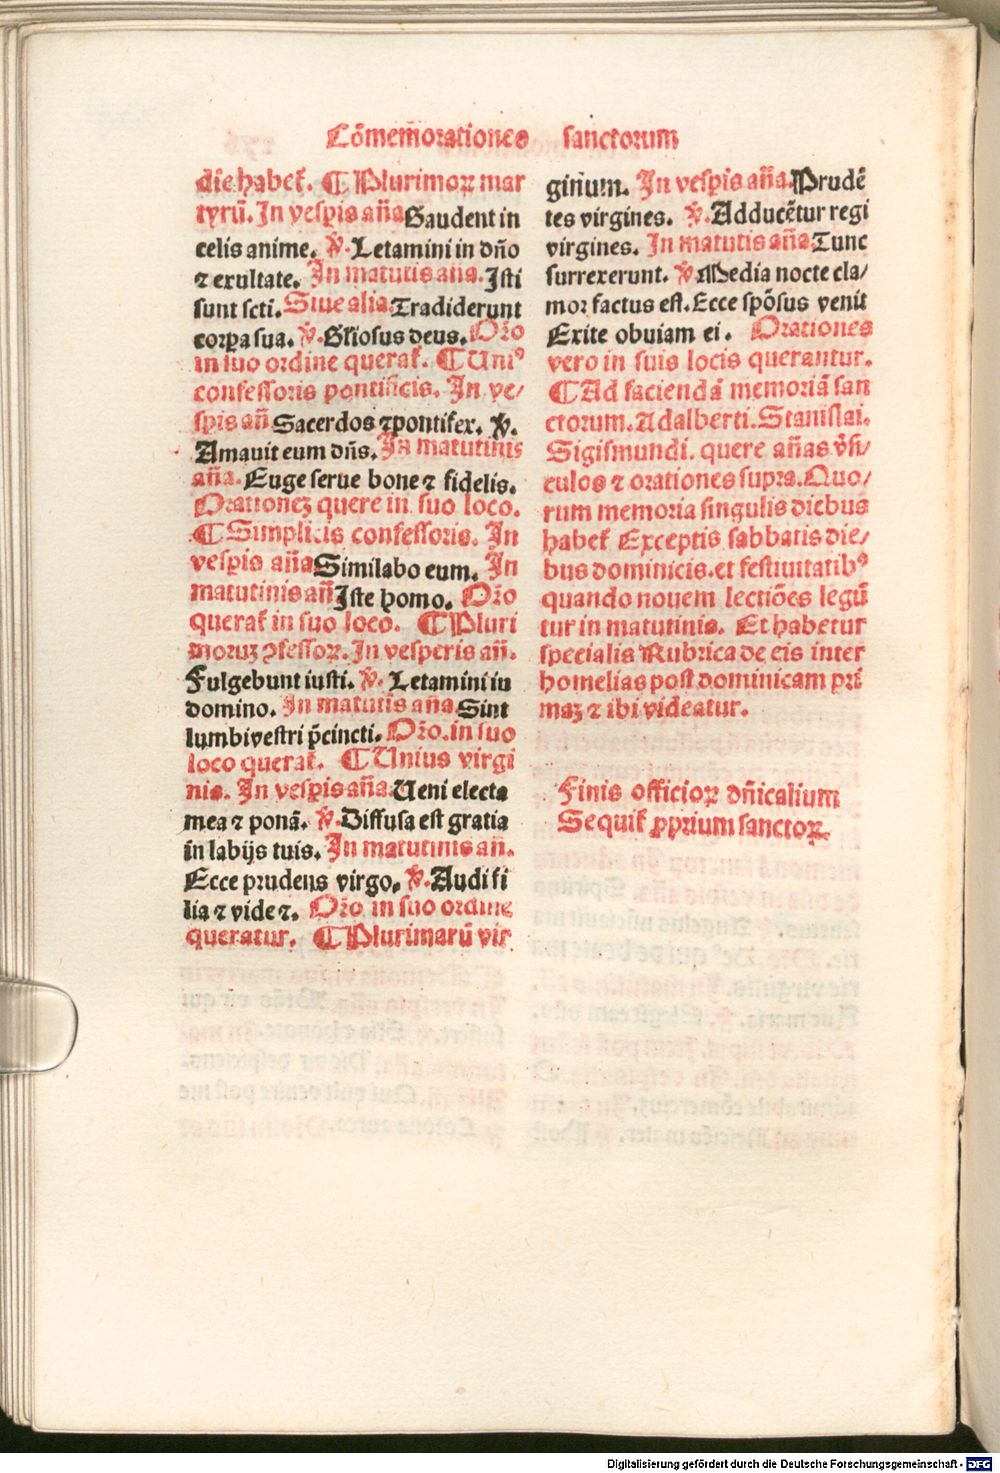 Cōmem̄orationes sanctorum
die habet᷑. ¶ Plurimoꝝ mar
tyrū. In vespis an̄a Gaudent in
celis anime. ℣. Letamini in dn̄o
⁊ exultate. In matutis an̄a. Isti
sunt scti. Siue alia Tradiderunt
corꝑa sua. ℣. Gl̓iosus deus. Or̄o
in suo ordine querat᷑. ¶ Uniꝰ
confessoris pontificis. In ve/
spis an̄ Sacerdos ⁊ pontifex. ℣.
Amauit eum dn̄s. In matutinis
an̄a. Euge serue bone ⁊ fidelis.
Orationeꝫ quere in suo loco.
¶ Simplicis confessoris. In
vesꝑis an̄a Similabo eum. In
matutinis an̄ Iste homo. Or̄o
querat᷑ in suo loco. ¶ Pluri
moruꝫ ꝯfessoꝝ. In vesperis an̄.
Fulgebunt iusti. ℣. Letamini in
domino. In matutis an̄a Sint
lumbi vestri p̄cincti. Or̄o. in suo
loco querat᷑. ¶ Unius virgi
nis. In vesꝑis an̄a. Ueni electa
mea ⁊ ponā. ℣. Diffusa est gratia
in labijs tuis. In matutinis an̄.
Ecce prudens virgo. ℣. Audi fi
lia ⁊ vide ⁊. Or̄o in suo ordine
queratur. ¶ Plurimarū vir
ginum. In vesꝑis an̄a. Prudē
tes virgines. ℣. Adducētur regi
virgines. In matutis an̄a Tunc
surrexerunt. ℣ Media nocte cla/
mor factus est. Ecce spōsus venit
Exite obuiam ei. Orationes
vero in suis locis querantur.
¶ Ad faciendā memoriā san
ctorum. Adalberti. Stanislai.
Sigismundi. quere an̄as v̓si/
culos ⁊ orationes supra. Quo/
rum memoria singulis diebus
habet᷑ Exceptis sabbatis die/
bus dominicis. et festiuitatibꝰ
quando nouem lectiōes legū
tur in matutinis. Et habetur
specialis Rubrica de eis inter
homelias post dominicam pri
maꝫ ⁊ ibi videatur.
Finis officioꝝ dn̄icalium
Sequit᷑ ꝓprium sanctoꝝ.
Digitalisierung gefördert durch die Deutsche Forschungsgemeinschaft - DFG